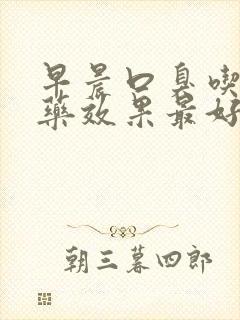 早晨口臭喫
藥效果最好
朝三暮四郎